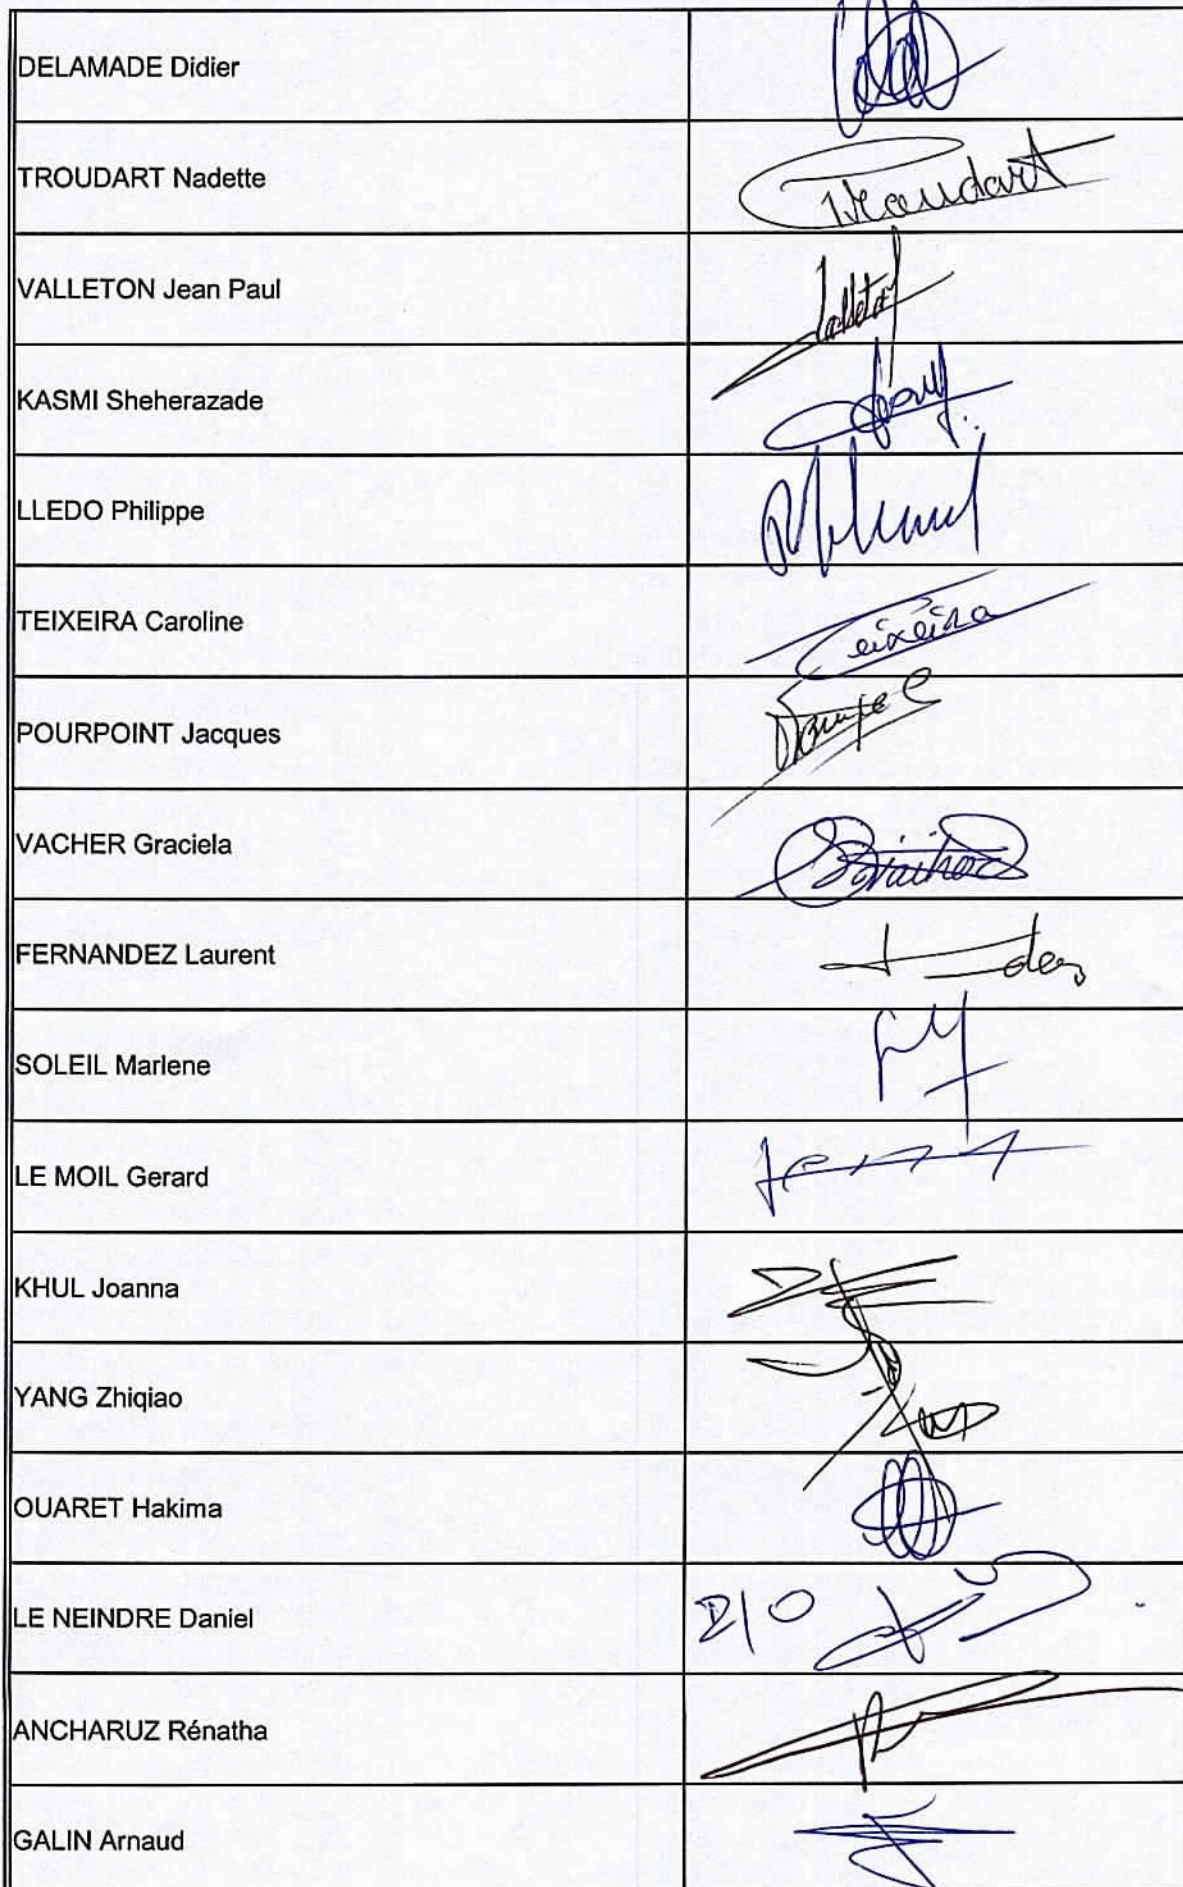 DELAMADE Didier
TROUDART Nadette Troudart
VALLETON Jean Paul Valleton
KASMI Sheherazade
LLEDO Philippe
TEIXEIRA Caroline Teixeira
POURPOINT Jacques
VACHER Graciela
FERNANDEZ Laurent
SOLEIL Marlene
LE MOIL Gerard
KHUL Joanna
YANG Zhiqiao
OUARET Hakima
LE NEINDRE Daniel P/O
ANCHARUZ Rénatha
GALIN Arnaud